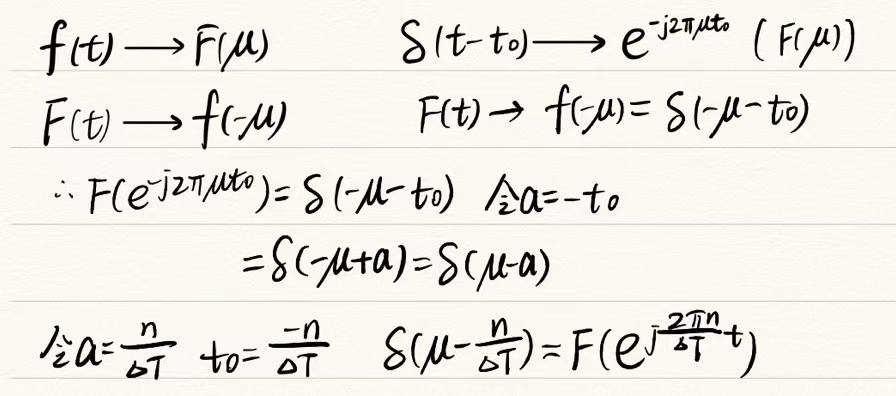 f(t) → F(μ) δ(t-t₀) → e^{-j2πμt₀} (F(μ))
F(t) → f(-μ) F(t) → f(-μ) = δ(-μ-t₀)
∴ F(e^{-j2πμt₀}) = δ(-μ-t₀) 令a=-t₀
=δ(-μ+a)=δ(μ-a)
令a=\frac{n}{ΔT} t₀=\frac{-n}{ΔT} δ(μ-\frac{n}{ΔT})=F(e^{j\frac{2πn}{ΔT}t})